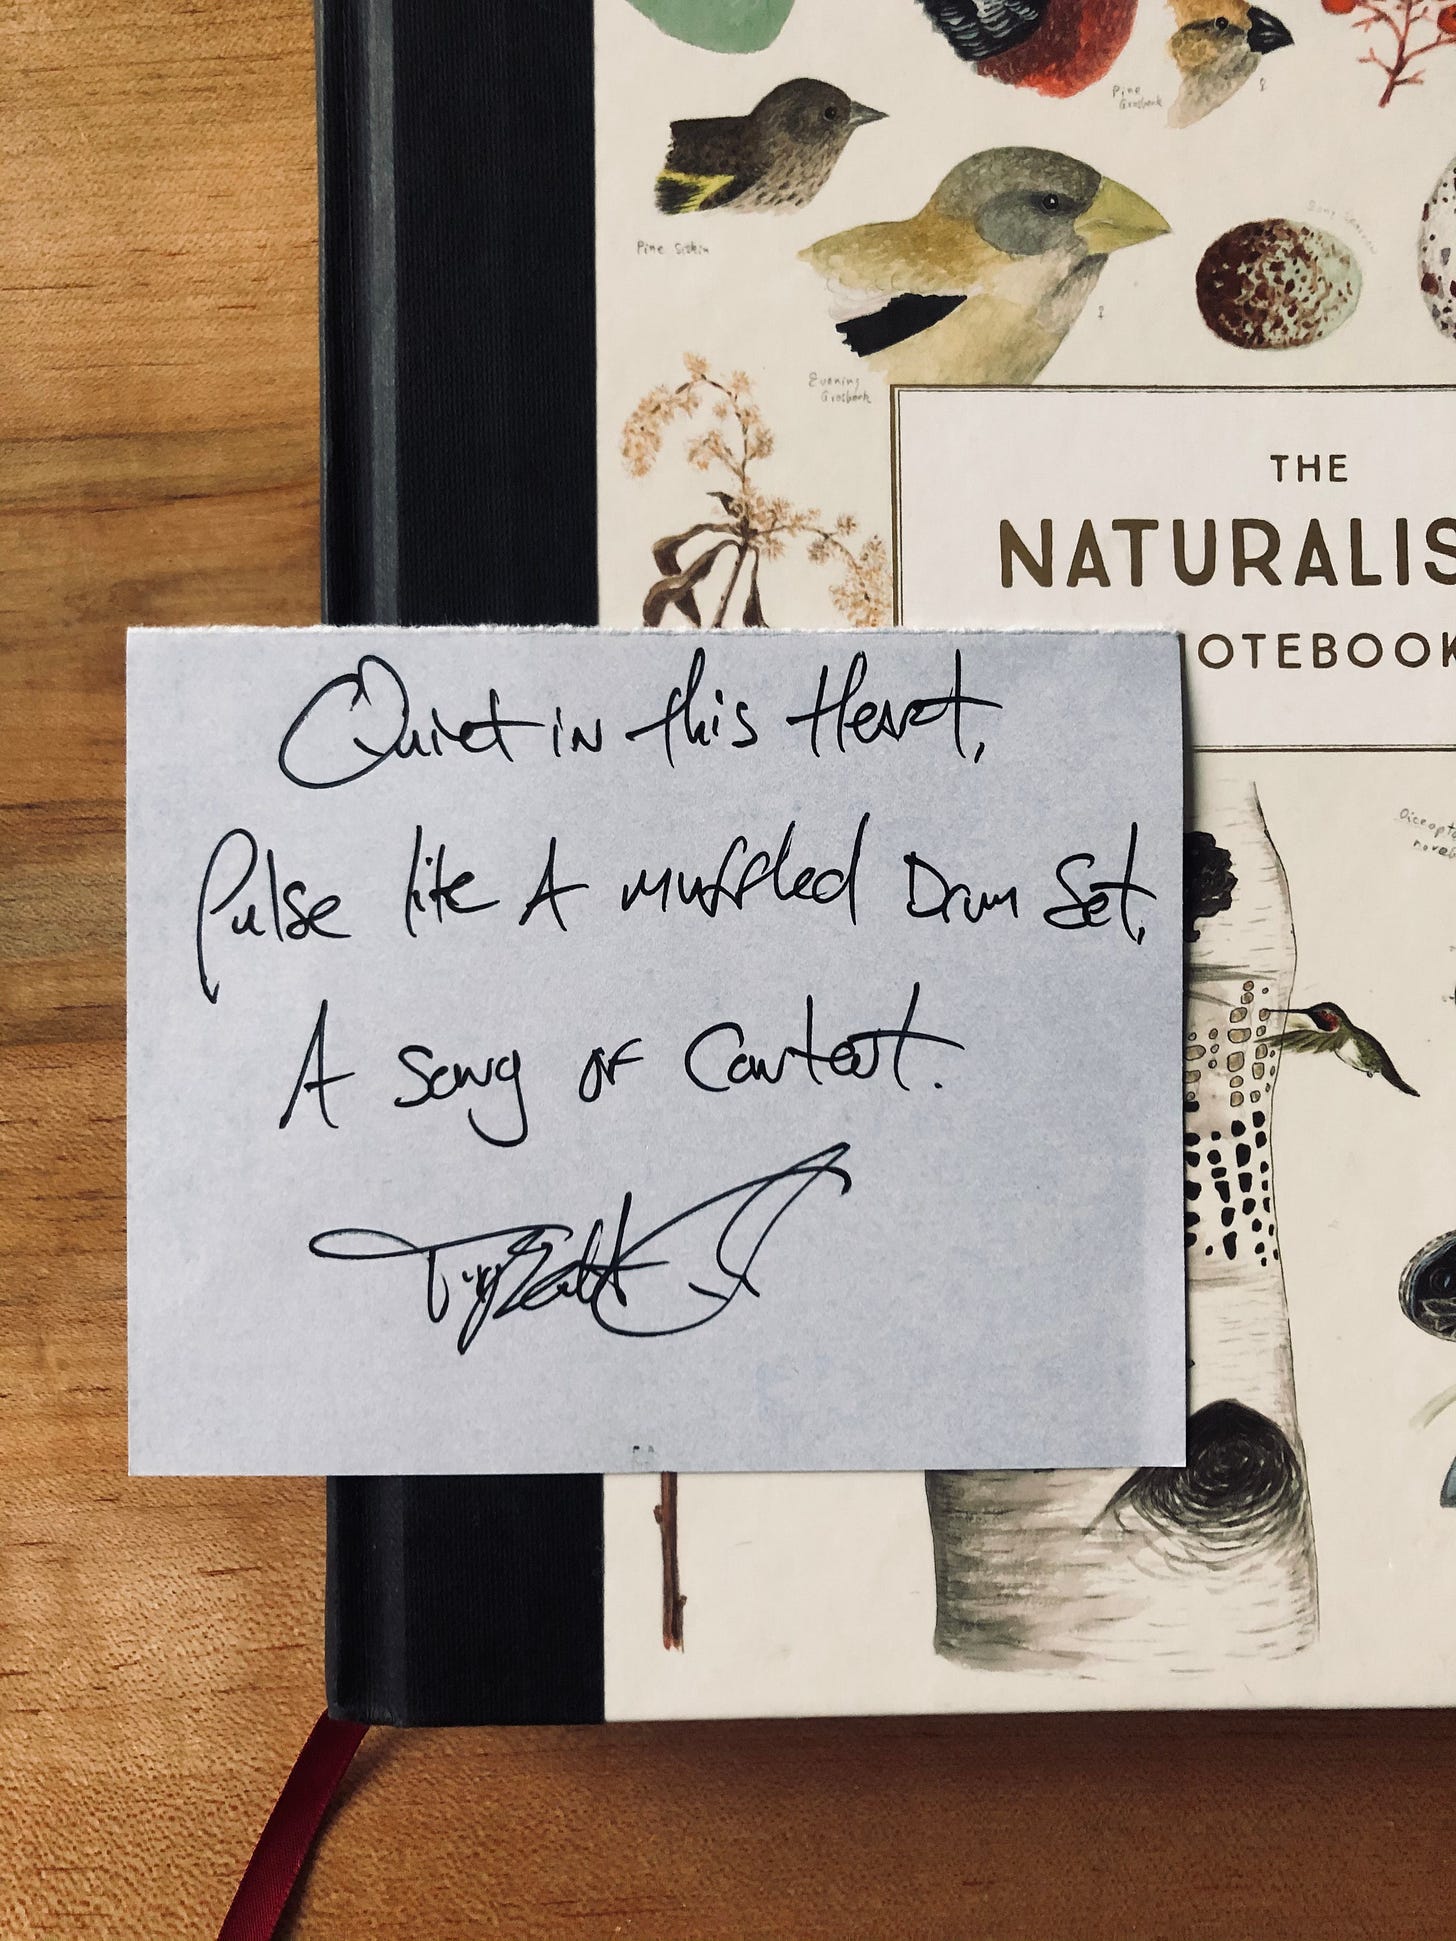 Pine
Grosbeak
Pine Siskin
Song Sparrow
Evening
Grosbeak
THE
NATURALIS
OTEBOOK
Quiet in this Heart,
Pulse like A muffled Drum Set,
A Song of Content.